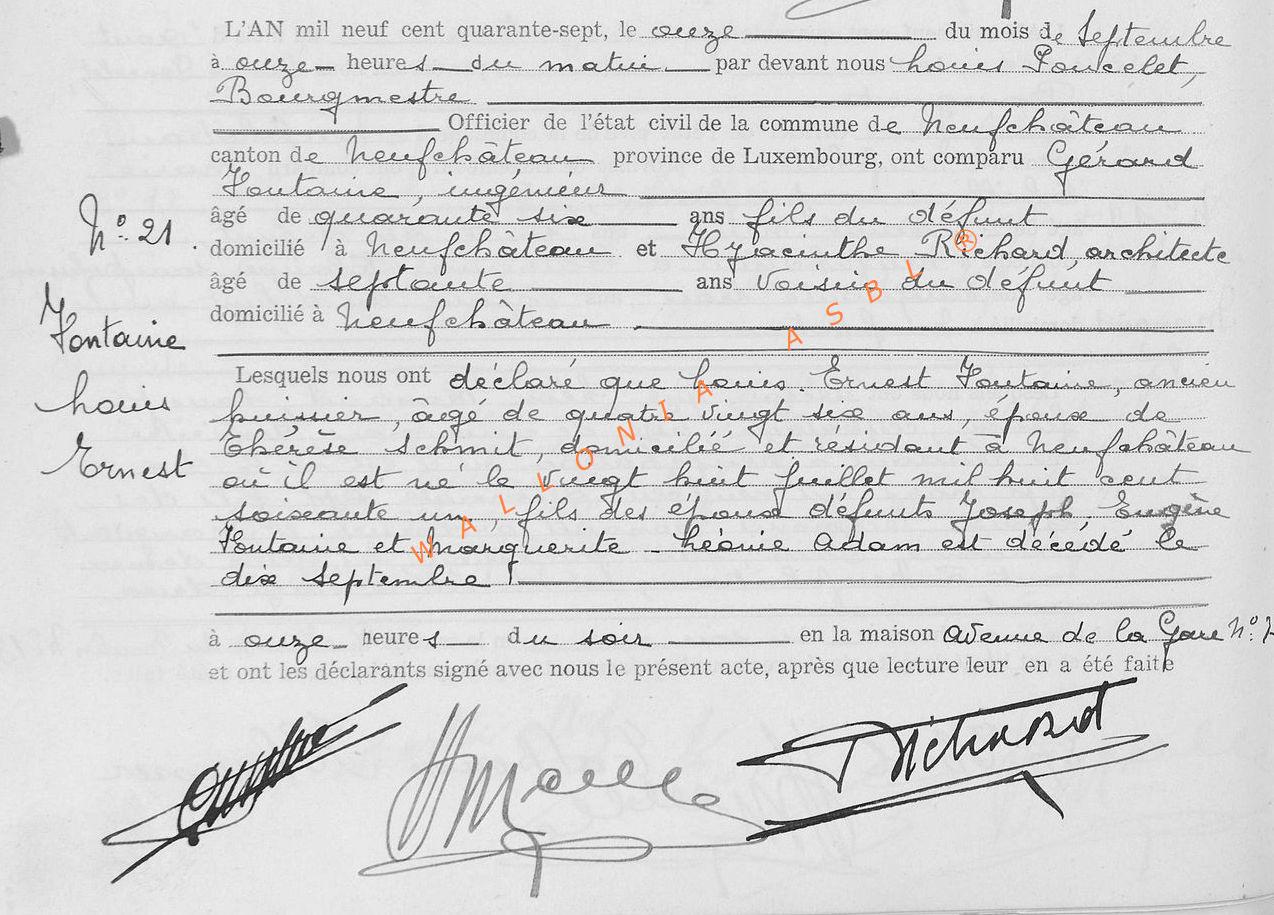 L'AN mil neuf cent quarante-sept, le onze du mois de Septembre
à onze heures du matin par devant nous Louis Poncelet,
Bourgmestre
Officier de l'état civil de la commune de Neufchâteau
canton de Neufchâteau province de Luxembourg, ont comparu Gérard
Fontaine, ingénieur
âgé de quarante six ans fils du défunt
domicilié à Neufchâteau et Hyacinthe Richard, architecte
âgé de septante ans voisin du défunt
domicilié à Neufchâteau
N° 21.
Fontaine
Louis
Ernest
Lesquels nous ont déclaré que Louis. Ernest Fontaine, ancien
huissier, âgé de quatre vingt six ans, époux de
Thérèse Schmit, domicilié et résidant à Neufchâteau
où il est né le vingt huit juillet mil huit cent
soixante un, fils des époux défunts Joseph. Eugène
Fontaine et Marguerite - Léonie Adam est décédé le
dix septembre
à onze heures du soir en la maison Avenue de la Gare N°
et ont les déclarants signé avec nous le présent acte, après que lecture leur en a été faite
Richard
WALLONIA ASBL ®